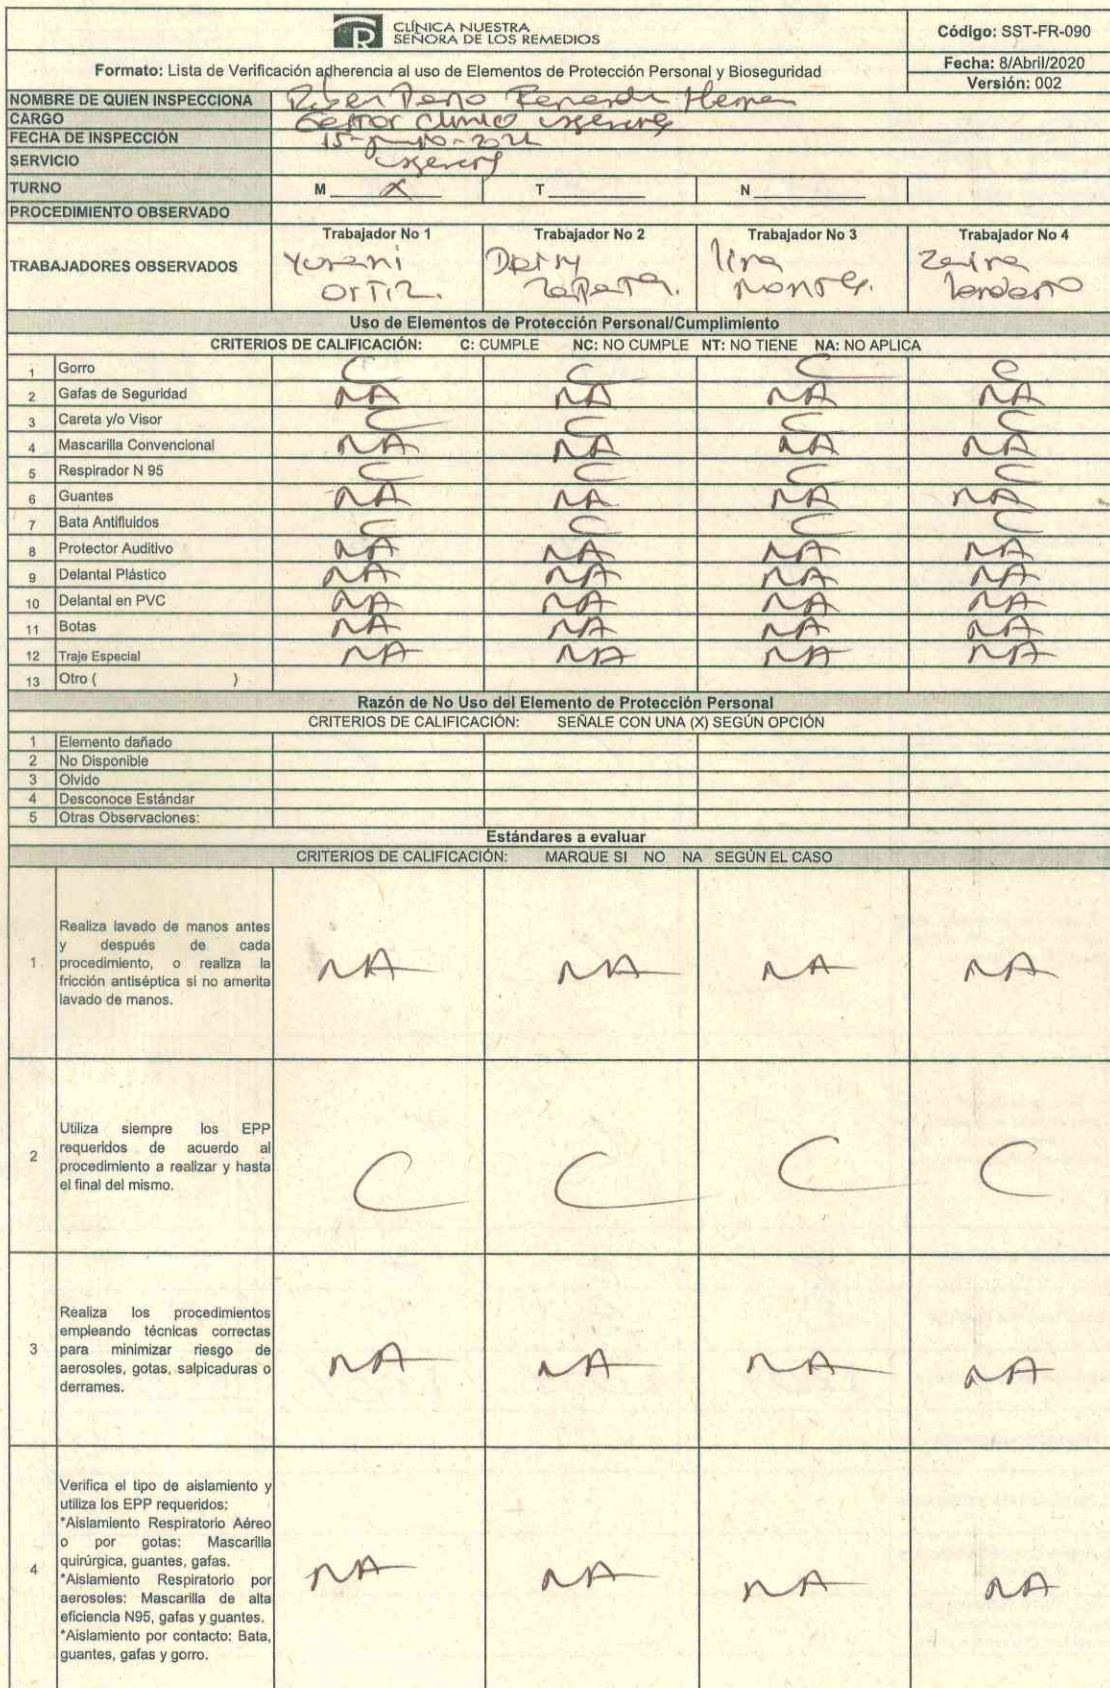 CLÍNICA NUESTRA
SEÑORA DE LOS REMEDIOS
Código: SST-FR-090
Formato: Lista de Verificación adherencia al uso de Elementos de Protección Personal y Bioseguridad
Fecha: 8/Abril/2020
Versión: 002
NOMBRE DE QUIEN INSPECCIONA
CARGO Gestor Clinico
FECHA DE INSPECCIÓN 15-
SERVICIO
TURNO M X T N
PROCEDIMIENTO OBSERVADO
TRABAJADORES OBSERVADOS
Trabajador No 1 Trabajador No 2 Trabajador No 3 Trabajador No 4
Yurani Zapata. Montes. Zaira
Ortiz.
Uso de Elementos de Protección Personal/Cumplimiento
CRITERIOS DE CALIFICACIÓN: C: CUMPLE NC: NO CUMPLE NT: NO TIENE NA: NO APLICA
1 Gorro C C C C
2 Gafas de Seguridad NA NA NA NA
3 Careta y/o Visor C C C C
4 Mascarilla Convencional NA NA NA NA
5 Respirador N 95 C C C C
6 Guantes NA NA NA NA
7 Bata Antifluidos C C C C
8 Protector Auditivo NA NA NA NA
9 Delantal Plástico NA NA NA NA
10 Delantal en PVC NA NA NA NA
11 Botas NA NA NA NA
12 Traje Especial NA NA NA NA
13 Otro ( )
Razón de No Uso del Elemento de Protección Personal
CRITERIOS DE CALIFICACIÓN: SEÑALE CON UNA (X) SEGÚN OPCIÓN
1 Elemento dañado
2 No Disponible
3 Olvido
4 Desconoce Estándar
5 Otras Observaciones:
Estándares a evaluar
CRITERIOS DE CALIFICACIÓN: MARQUE SI NO NA SEGÚN EL CASO
1 Realiza lavado de manos antes
y después de cada
procedimiento, o realiza la
fricción antiséptica si no amerita
lavado de manos.
NA NA NA NA
2 Utiliza siempre los EPP
requeridos de acuerdo al
procedimiento a realizar y hasta
el final del mismo.
C C C C
3 Realiza los procedimientos
empleando técnicas correctas
para minimizar riesgo de
aerosoles, gotas, salpicaduras o
derrames.
NA NA NA NA
4 Verifica el tipo de aislamiento y
utiliza los EPP requeridos:
*Aislamiento Respiratorio Aéreo
o por gotas: Mascarilla
quirúrgica, guantes, gafas.
*Aislamiento Respiratorio por
aerosoles: Mascarilla de alta
eficiencia N95, gafas y guantes.
*Aislamiento por contacto: Bata,
guantes, gafas y gorro.
NA NA NA NA